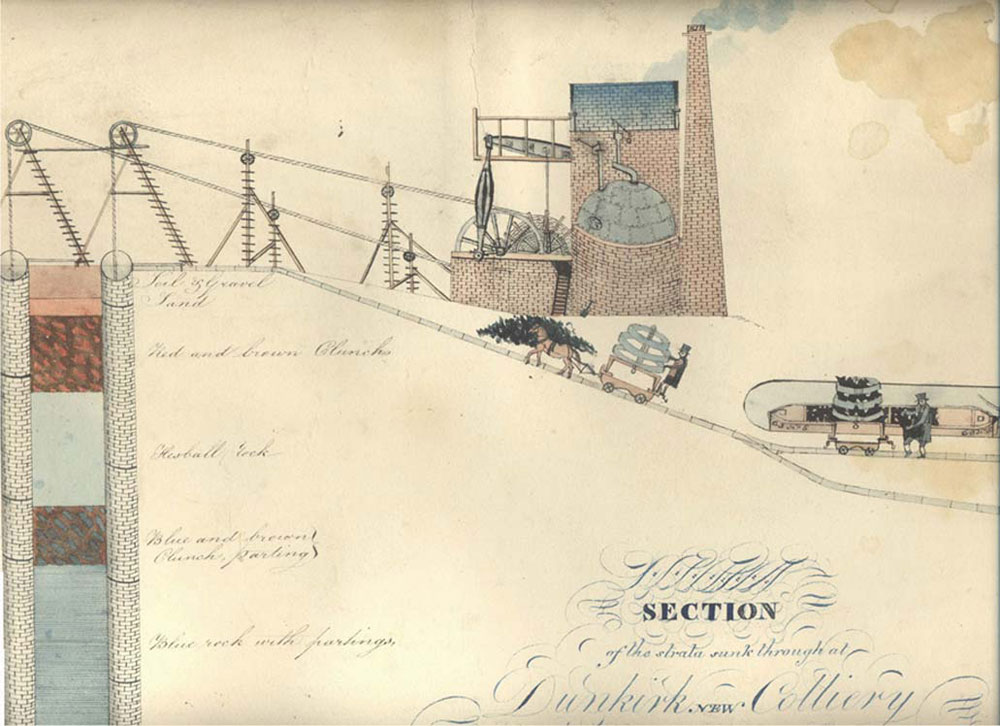 Soil & Gravel
Sand
Red and brown Clunch
rock
Blue and brown
Clunch, parting
Blue rock with partings
SECTION
of the strata sunk through at
Dunkirk NEW Colliery